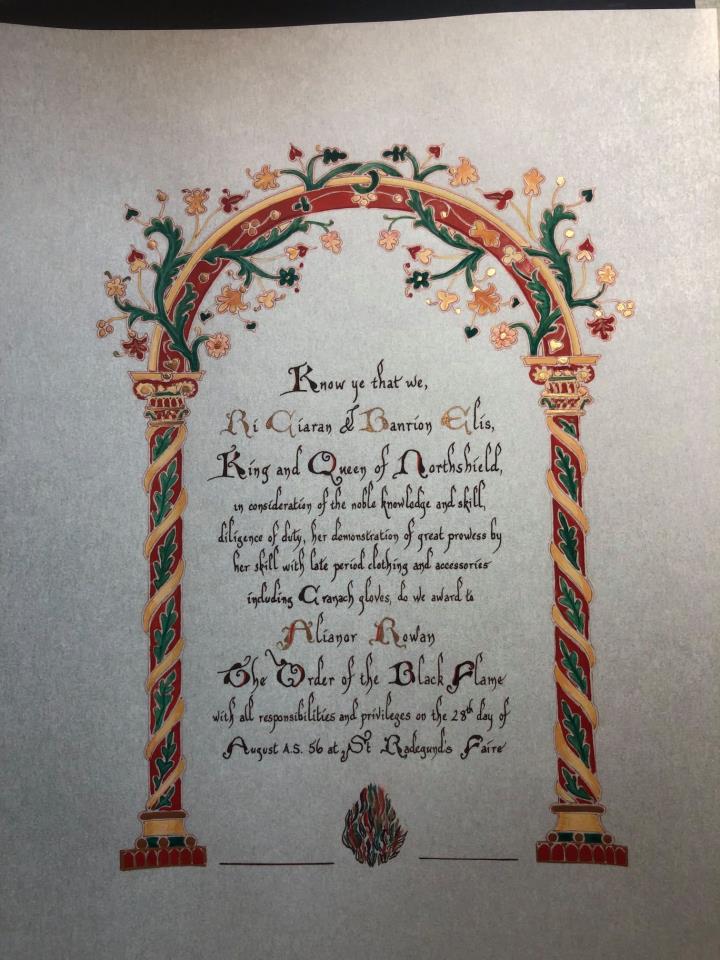 Know ye that we,
Ri Ciaran & Banrion Elis,
King and Queen of Northshield,
in consideration of the noble knowledge and skill,
diligence of duty, her demonstration of great prowess by
her skill with late period clothing and accessories
including Cranach gloves, do we award to
Alianor Rowan
The Order of the Black Flame
with all responsibilities and privileges on the 28th day of
August A.S. 56 at St Radegund's Faire